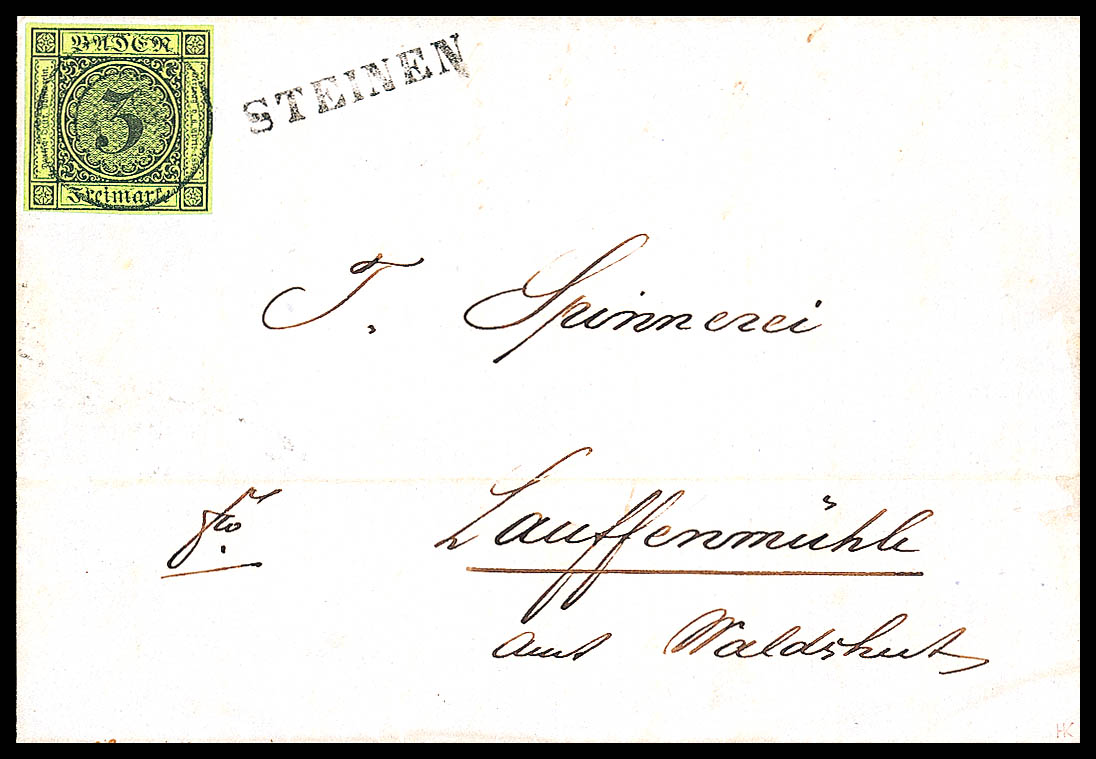 BADEN
3
Freimarke
STEINEN
T. Spinnerei
fco.
Lauffenmühle
amt Waldshut
HK